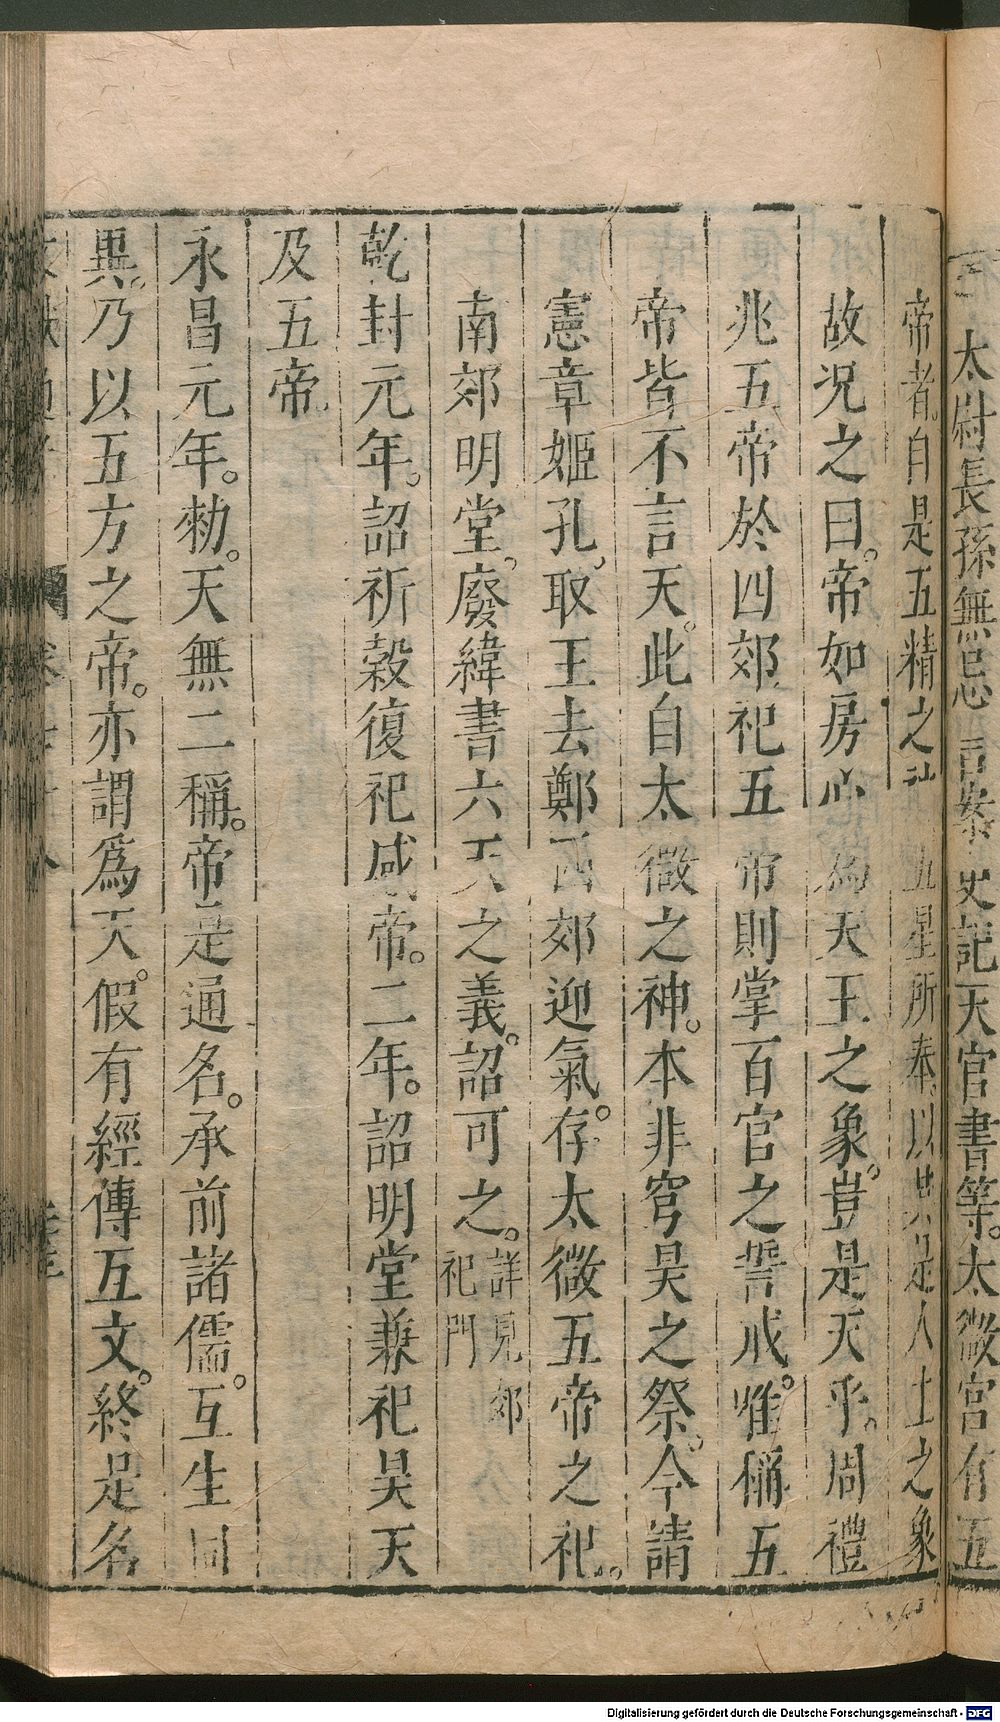 太尉長孫無忌言案史記天官書等。太微宮有五
帝者。自是五精之神五星所奉。以其是人主之象
故況之曰。帝如房心為天王之象。豈是天乎。周禮
兆五帝於四郊祀五帝則掌百官之誓戒。唯稱五
帝皆不言天。此自太微之神。本非穹昊之祭。今請
憲章姬孔。取王去鄭四郊迎氣。存太微五帝之祀。
南郊明堂。廢緯書六天之義。詔可之。詳見郊祀門
乾封元年。詔祈穀復祀感帝。二年。詔明堂兼祀昊天
及五帝
永昌元年。勑。天無二稱。帝是通名。承前諸儒。互生同
異。乃以五方之帝。亦謂爲天。假有經傳互文。終是名
Digitalisierung gefördert durch die Deutsche Forschungsgemeinschaft - DFG